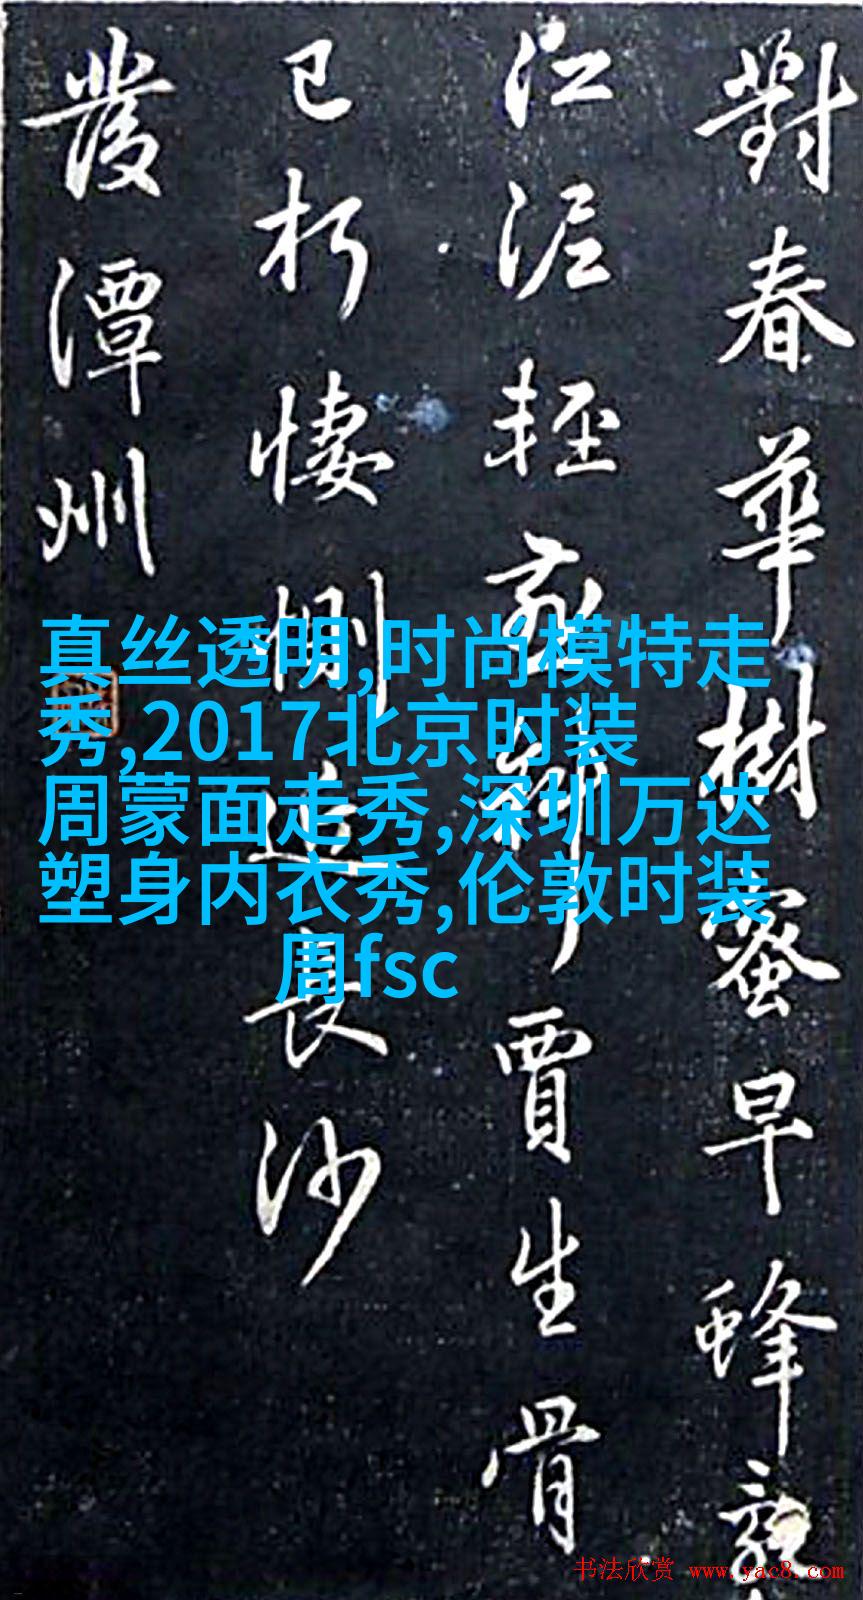 對春華樹蜜早蜂亂
江泥輕燕斜賈生骨
已朽悽惻近長沙
發潭州
真丝透明,时尚模特走
秀,2017北京时装
周蒙面走秀,深圳万达
塑身内衣秀,伦敦时装
周fsc
书法欣赏 www.yac8.com